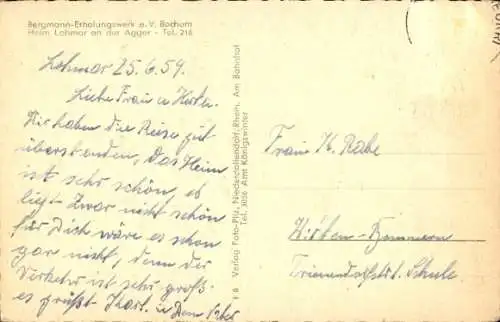 Bergmann-Erholungswerk e. V. Bochum
Heim Lohmar an der Agger - Tel. 216
Lohmar 25.6.59.
Liebe Frau u. Kirke.
Wir haben die Reise gut
überstanden, Das Heim
ist sehr schön, es
liegt zwar nicht schön
für Dich wäre es schon
gar nichts, denn der
Verkehr ist sehr groß.
es grüßt Karl. u Dein Vater
F 8 Verlag Foto-Pilz, Niederdollendorf/Rhein, Am Bahnhof
Tel. 3056 Amt Königswinter
Frau K. Rabe